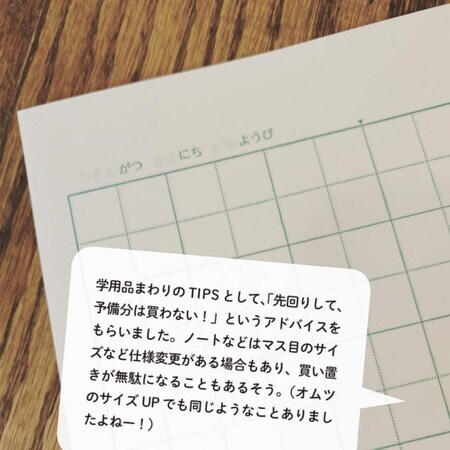 がつ にち ようび
学用品まわりのTIPSとして、「先回りして、
予備分は買わない!」というアドバイスを
もらいました。ノートなどはマス目のサイ
ズなど仕様変更がある場合もあり、買い置
きが無駄になることもあるそう。(オムツ
のサイズUPでも同じようなことありまし
たよねー!)